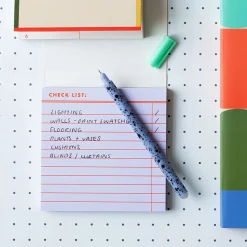 CHECK LIST:
LIGHTING /
WALLS - PAINT SWATCHES
FLOORING /
PLANTS + VASES
CUSHIONS
BLINDS / CURTAINS